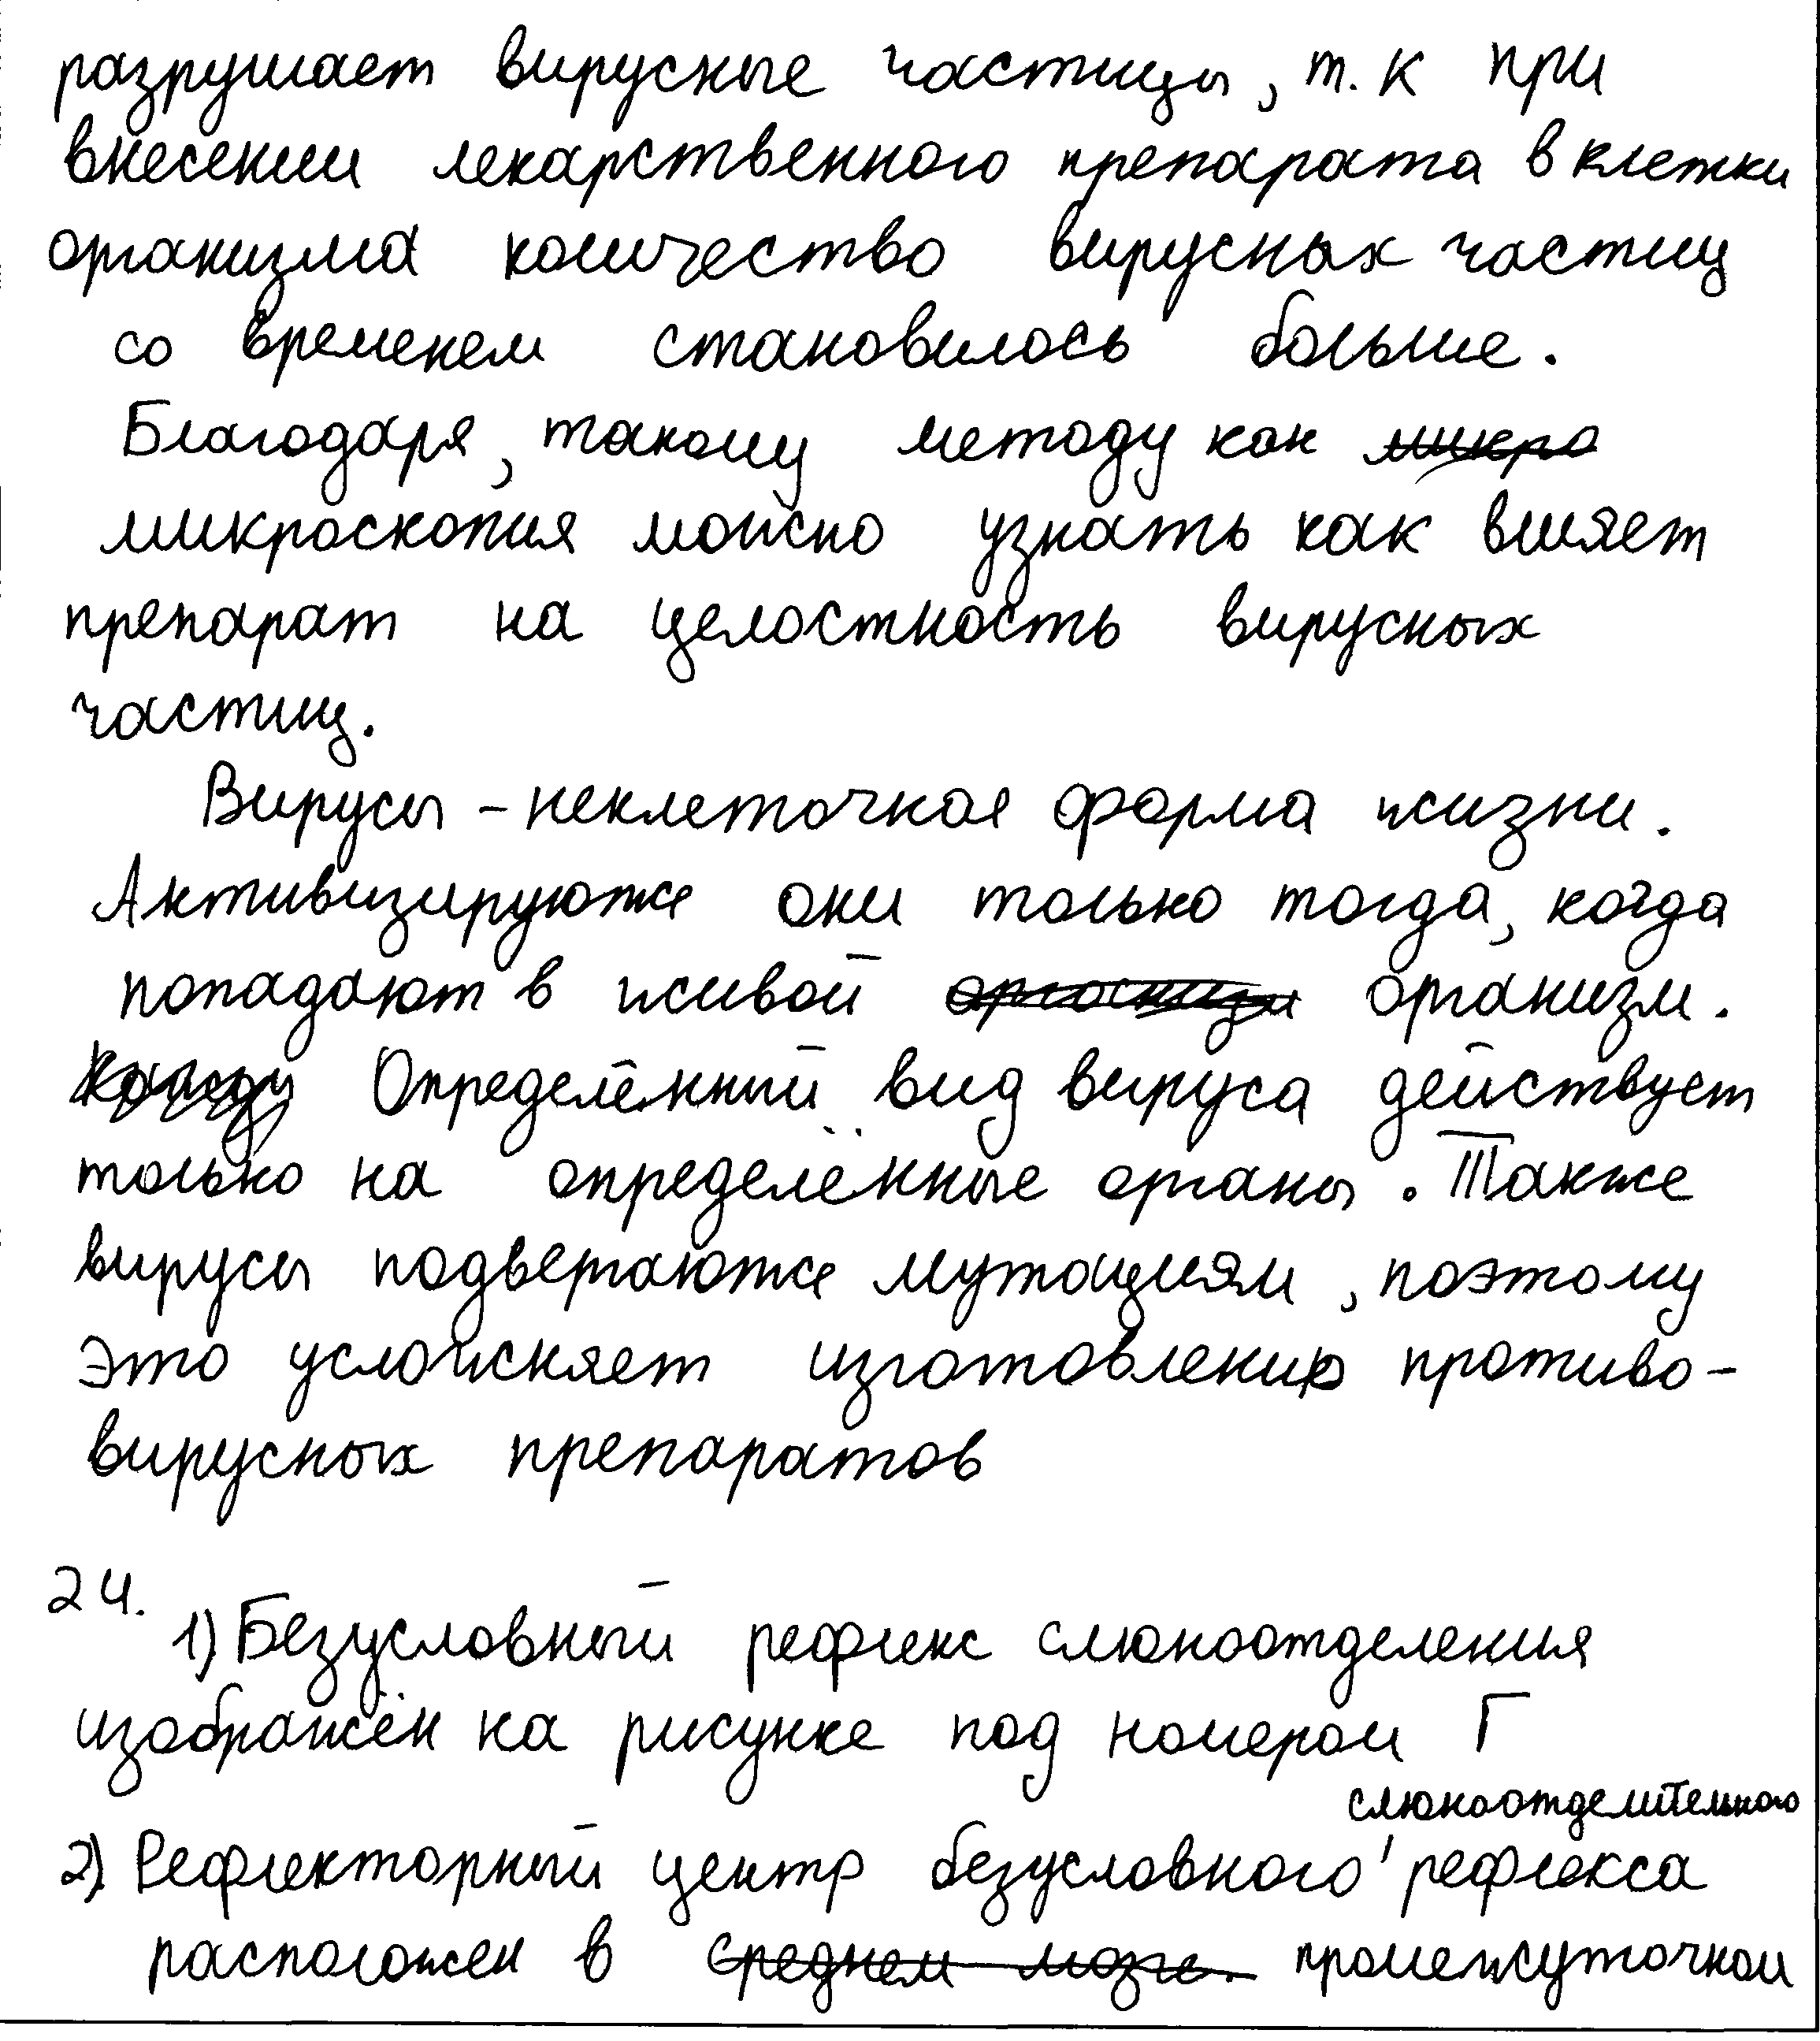 разрушает вирусные частицы, т. к при
внесении лекарственного препарата в клетки
организма количество вирусных частиц
со временем становилось больше.
Благодаря, такому методу как микро
микроскопия можно узнать как влияет
препарат на целостность вирусных
частиц.
Вирусы – неклеточная форма жизни.
Активизируются они только тогда, когда
попадают в живой организм.
Определённый вид вируса действует
только на определённые органы. Также
вирусы подвергаются мутациям, поэтому
это усложняет изготовление противо-
вирусных препаратов
24.
1) Безусловный рефлекс слюноотделения
изображён на рисунке под номером Г
слюноотделительного
2) Рефлекторный центр безусловного ' рефлекса
расположен в среднем мозге. промежуточном